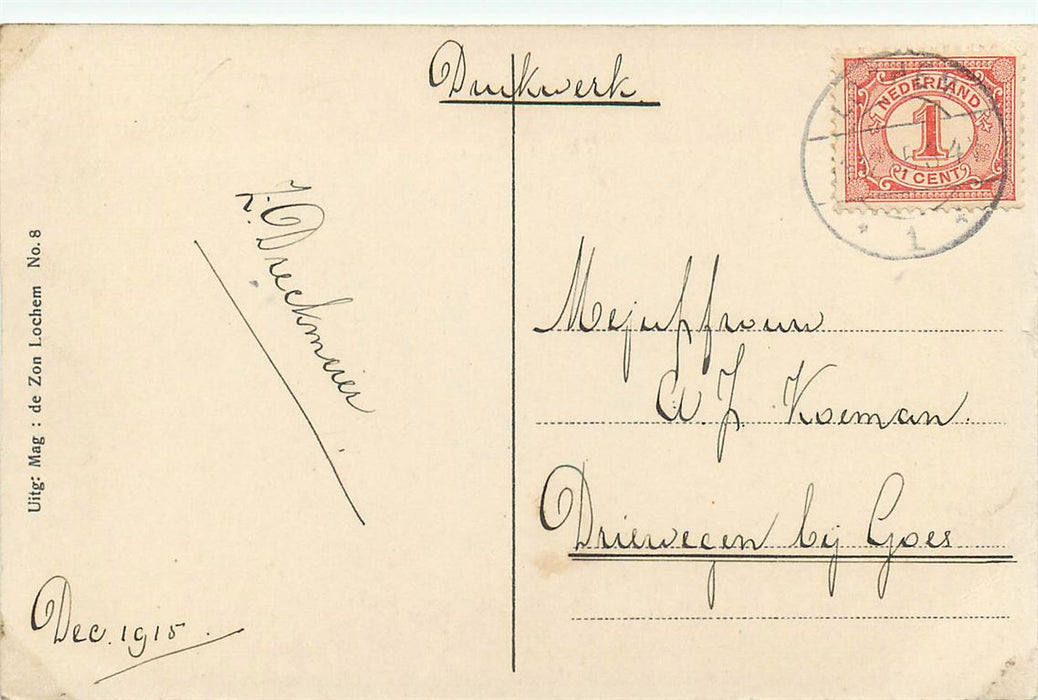 Drukwerk
NEDERLAND
1
1 CENT
1
Z. Dreckmeier
Uitg: Mag : de Zon Lochem No. 8
Mejuffrouw
A. J. Koeman.
Driewegen bij Goes
Dec. 1915.